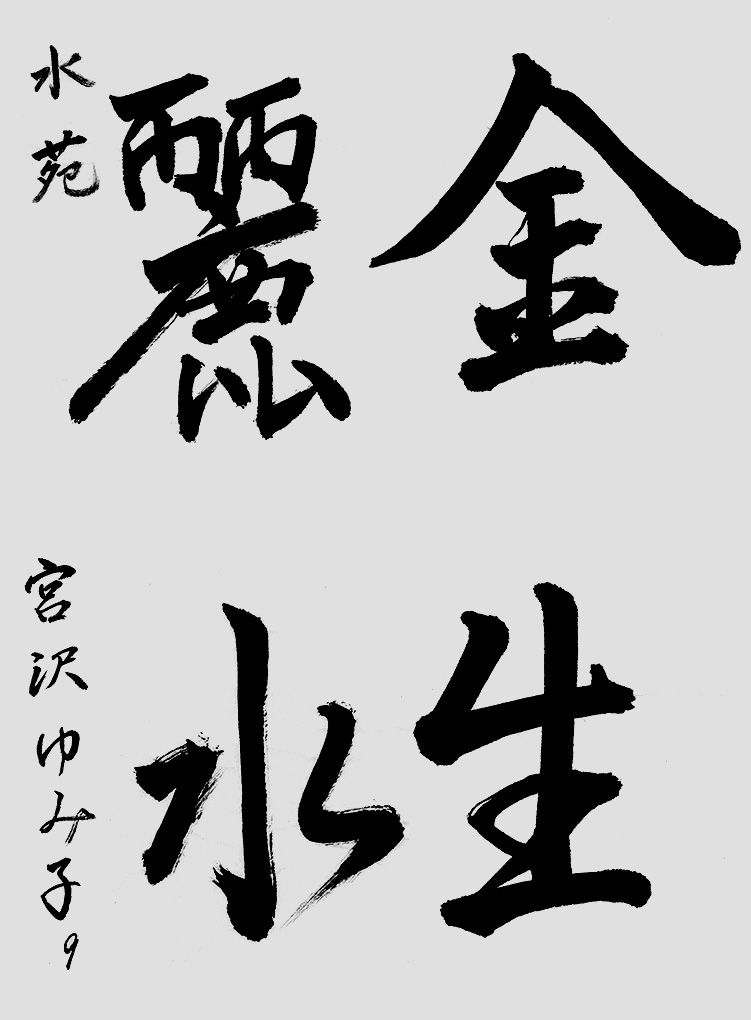 金生
麗水
水苑
宮沢ゆみ子
9